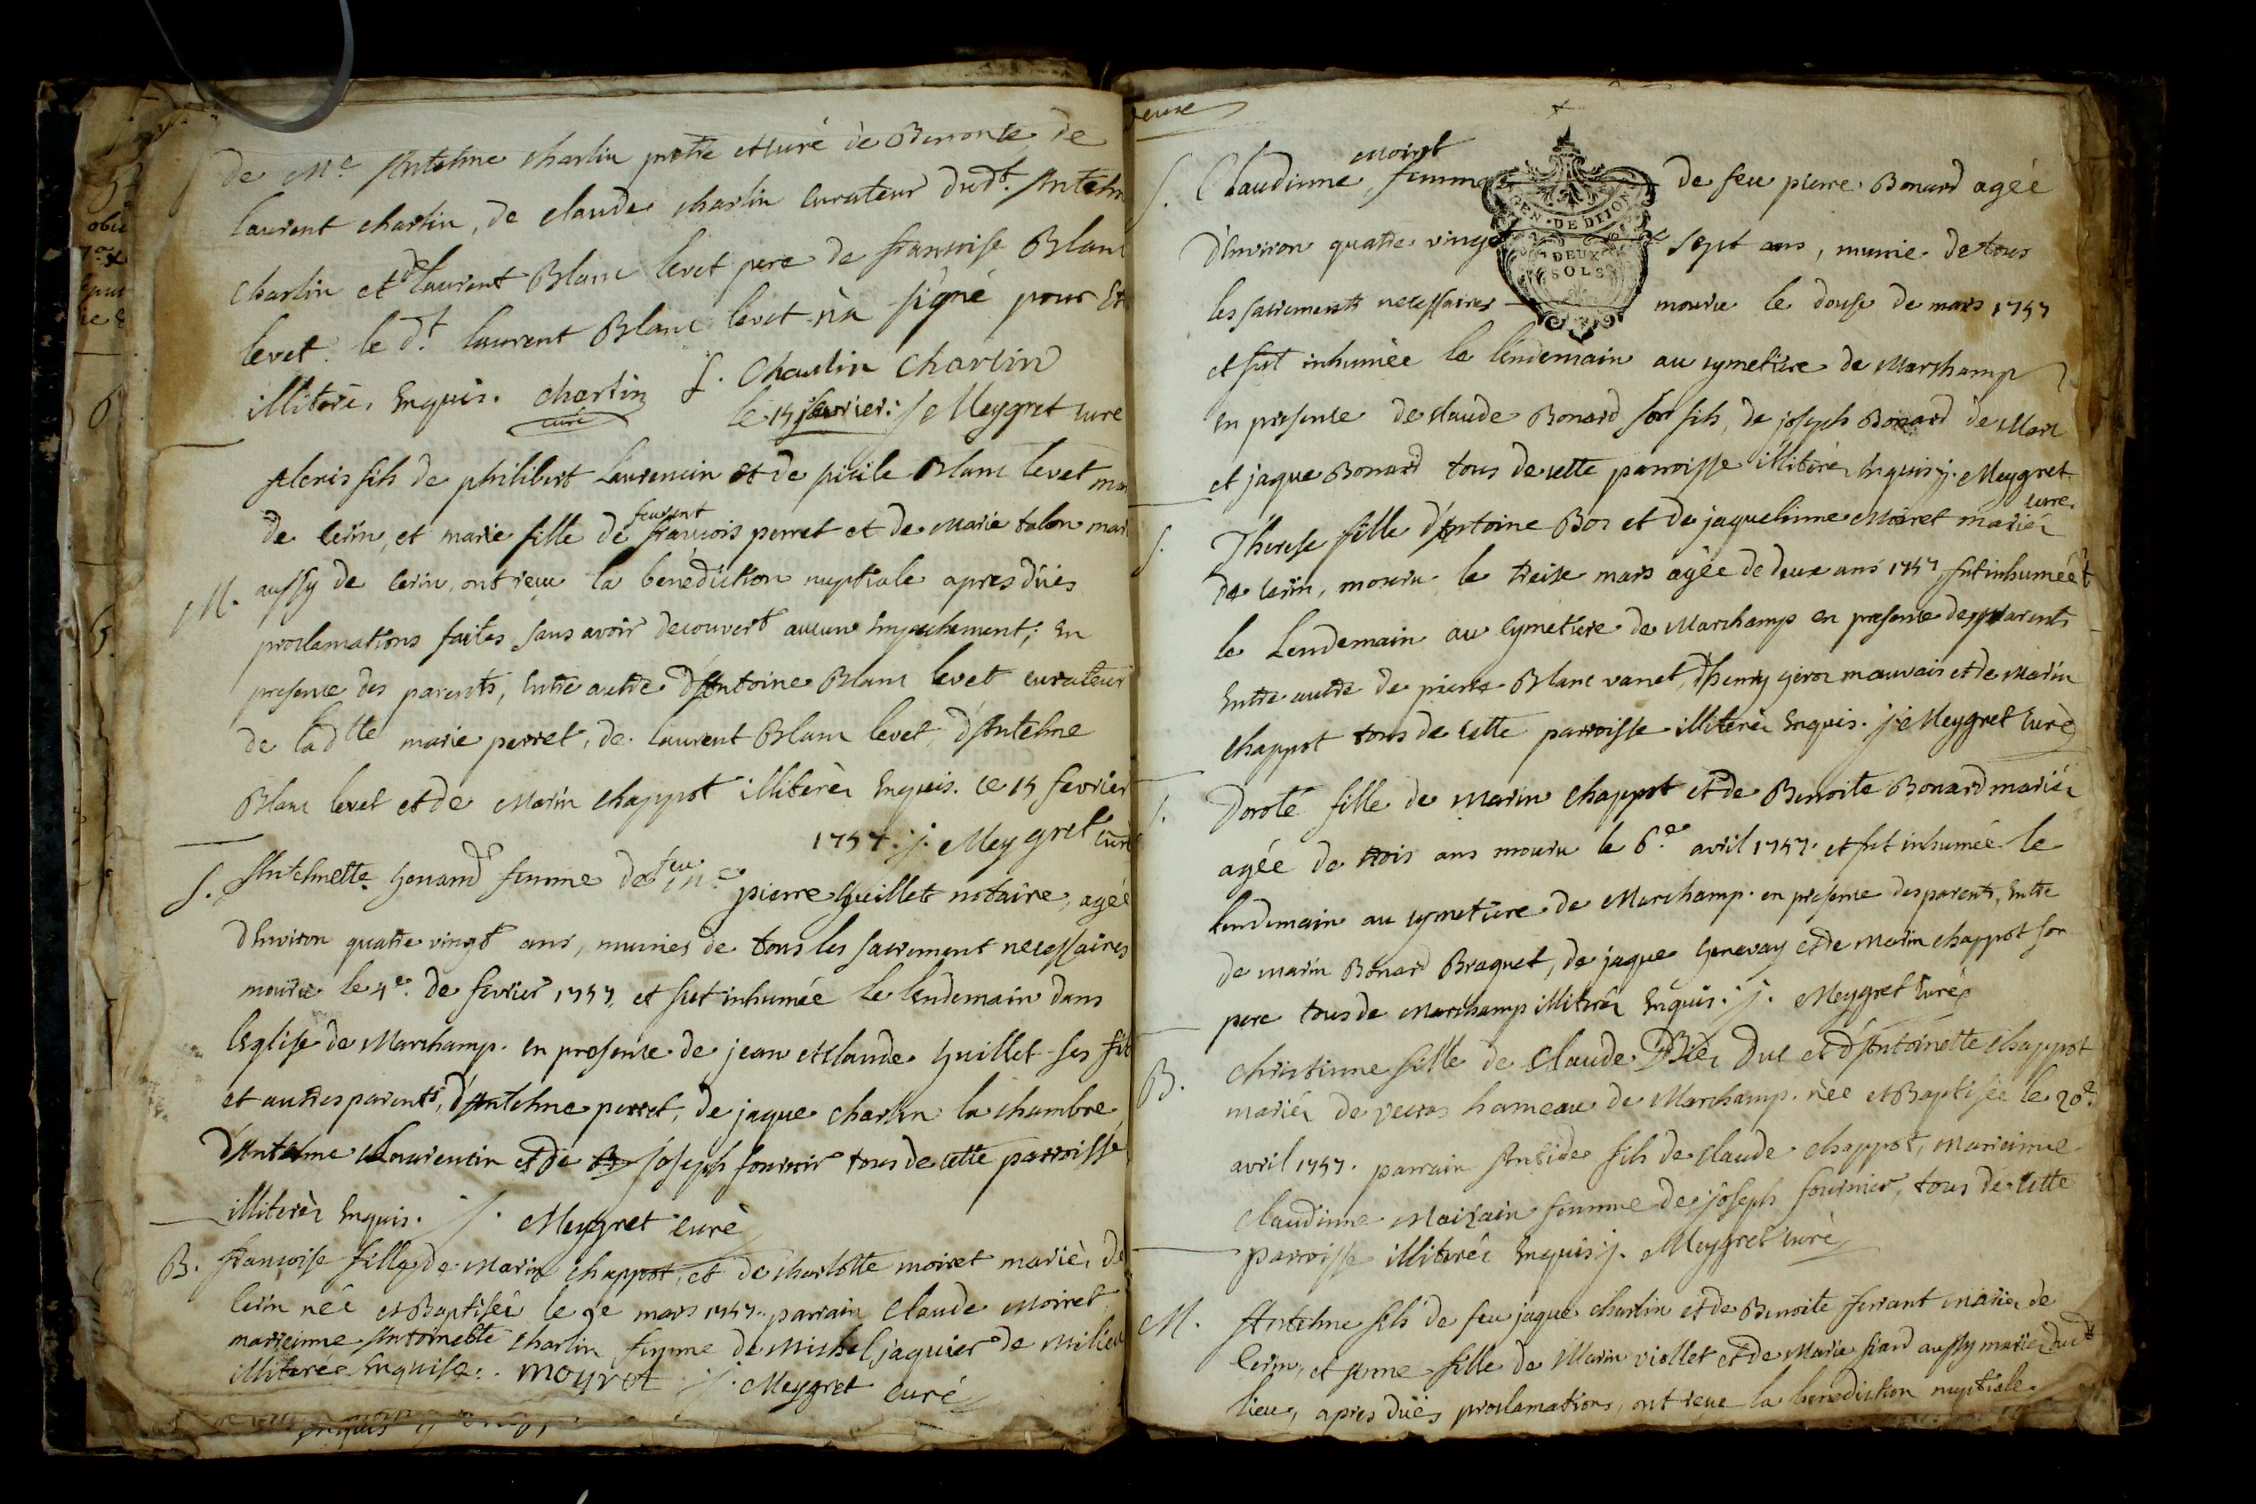 de Me Antelme charlin pretre et curé de Benonce, de
laurent charlin, de claude charlin curateur dudt. Antelm
charlin et de laurent Blanc levet pere de francoise Blanc
levet. le dt. laurent Blanc levet n'a signé pour Et
illiterés Enquis. charlin curé f. Charlin Charlin
le 15 fevrier. j Meygret cure
Alexis fils de philibert Laurencin et de Blanc levet
de cerin, et marie fille de feu françois perret et de Marie talon mar
M. aussy de cerin, ont reçu la benediction nuptiale apres dües
proclamations faites sans avoir decouvert aucun Empechement; En
presence des parents, Entre autre d'Antoine Blanc levet curateur
de ladtte marie perret, de laurent Blanc levet, d'Antelme
Blanc levet et de Marin chappot illiterés Enquis. ce 15 fevrier
1757. j. Meygret curé
S. Antelmette femme de feu Me pierre guillet notaire, agée
d'Environ quatre vingt ans, munies de tous les sacrement necessaires
mouru le 4e. de fevrier 1757, et fut inhumée le lendemain dans
l'Eglise de Marchamp. en presence de jean et claude guillet ses fils
et autres parents, d'Antelme perret, de jaque charlin la chambre,
d'Antelme Laurencin et de joseph tous de cette parroisse
illiterés Enquis. j. Meygret curé
B. francoise fille de Marin chappot, et de charlotte moiret mariés de
cerin née et Baptisée le 9e mars 1757. parrain claude Moiret
marreinne Antoinette charlin femme de Michel jaquier de milieu
illiterée Enquise. moyret j. Meygret curé
S. Claudinne Moiret femme de feu pierre Bonard agée
GEN. DE DEION
d'Environ quatre vingt sept ans, munie de tous
DEUX SOLS
les sacrements necessaires mouru le douse de mars 1757
et fut inhumée le lendemain au cymetiere de Marchamp
en presence de claude Bonard son fils, de joseph Bonard de Marc
et jaque Bonard tous de cette parroisse illiterés Enquis j. Meygret
cure
S. Therese fille d'Antoine Bos et de jaquelinne Moiret mariés
de cerin, mouru le treise mars agée de deux ans 1757, fut inhumée
le Lendemain au cymetiere de Marchamp en presence des parents
Entre autre de pierre Blanc vanet, d'henry mauvais et de Marin
chappot tous de cette parroisse illiterés Enquis. j. Meygret curé
S. Doroté fille de Marin chappot et de Benoite Bonard mariés
agée de trois ans mouru le 6e. avril 1757. et fut inhumée le
lendemain au cymetiere de Marchamp. en presence des parents, Entre
de marin Bonard Braquet, de jaque Genevay et de Marin chappot son
pere tous de Marchamp illiterés Enquis. j. Meygret curé
B. Christinne fille de Claude Duc et d'Antoinette chappot
mariés de hameau de Marchamp. née et Baptisée le 20e.
avril 1757. parrain Antide fils de claude chappot, Marreinne
claudinne femme de joseph fournier, tous de cette
parroisse illiterés Enquis j. Meygret curé
M. Antelme fils de feu jaque charlin et de Benoite ferrant mariés de
cerin, et Anne fille de Marin viollet et de Marie siand aussy mariés dudt
lieu, apres dües proclamations, ont reçue la benediction nuptiale